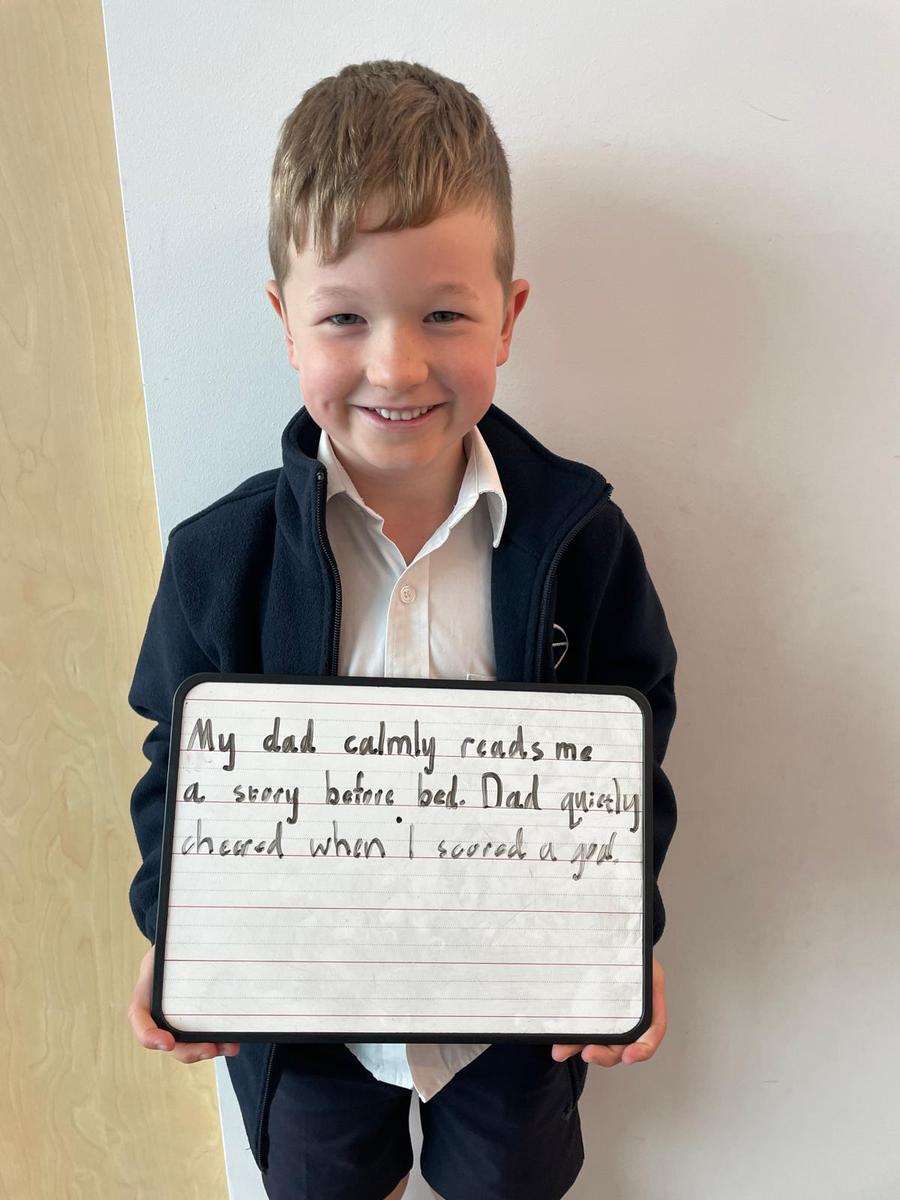 My dad calmly reads me
a story before bed. Dad quietly
cheered when I scored a goal.